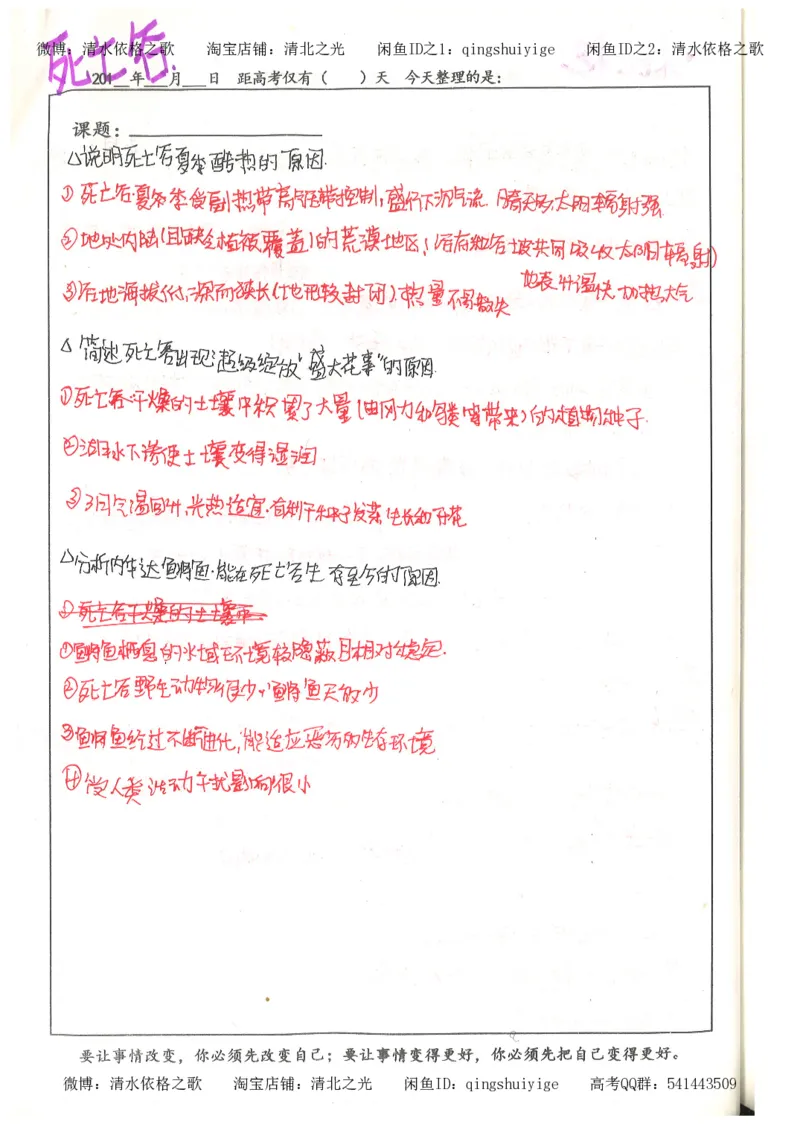 死亡谷.
微博：清水依格之歌 淘宝店铺：清北之光 闲鱼ID之1：qingshuiyige 闲鱼ID之2：清水依格之歌
201__年___月___日 距高考仅有（ ）天 今天整理的是：
课题：
△说明死亡谷夏季酷热的原因.
①死亡谷夏季受副热带高气压带控制,盛行下沉气流.晴天多太阳辐射强.
②地处内陆(且缺乏植被覆盖)的荒漠地区,(谷底和谷坡共同吸收太阳辐射)
地表升温快.加热大气
③谷地海拔低,深而狭长(地形较封闭)热量不易散失
△简述死亡谷出现"超级绽放"盛大花事"的原因.
①死亡谷干燥的土壤中积累了大量(由风力和鸟类等带来)的植物种子.
②湖水下渗使土壤变得湿润
③3月气温回升,光热适宜.有利于种子发芽生长和开花
△分析内华达鱂鱼.能在死亡谷生存至今的原因.
①死亡谷干燥的土壤中
①鱂鱼栖息的水域环境较隐蔽且相对稳定.
②死亡谷野生动物很少,鱂鱼天敌少
③鱂鱼经过不断进化,能适应恶劣的生存环境
④受人类活动干扰影响很小
要让事情改变，你必须先改变自己；要让事情变得更好，你必须先把自己变得更好。
微博：清水依格之歌 淘宝店铺：清北之光 闲鱼ID：qingshuiyige 高考QQ群：541443509